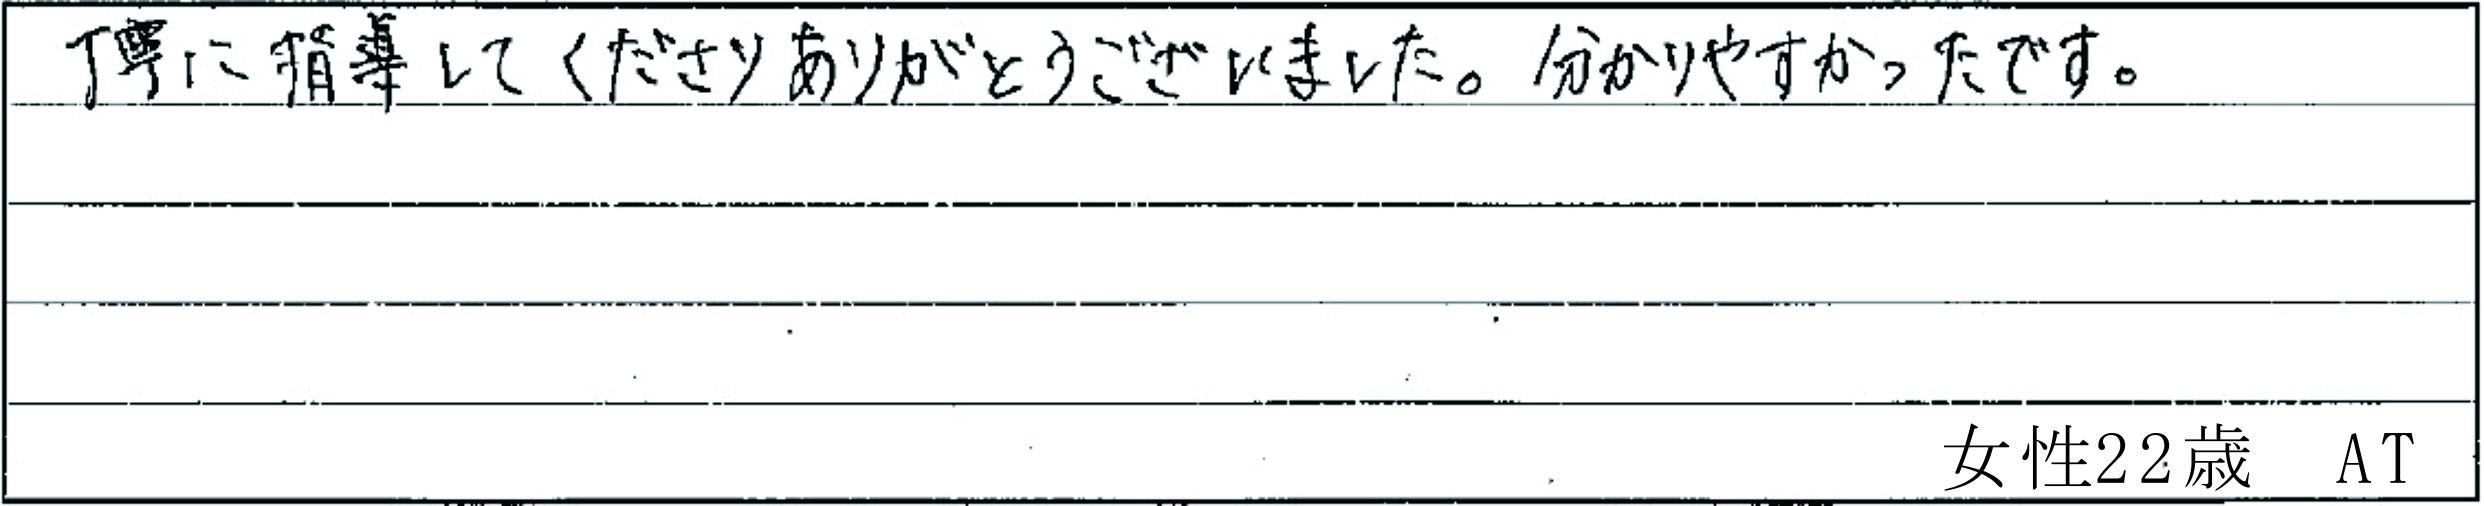 丁寧に指導してくださりありがとうございました。分かりやすかったです。
女性22歳　AT